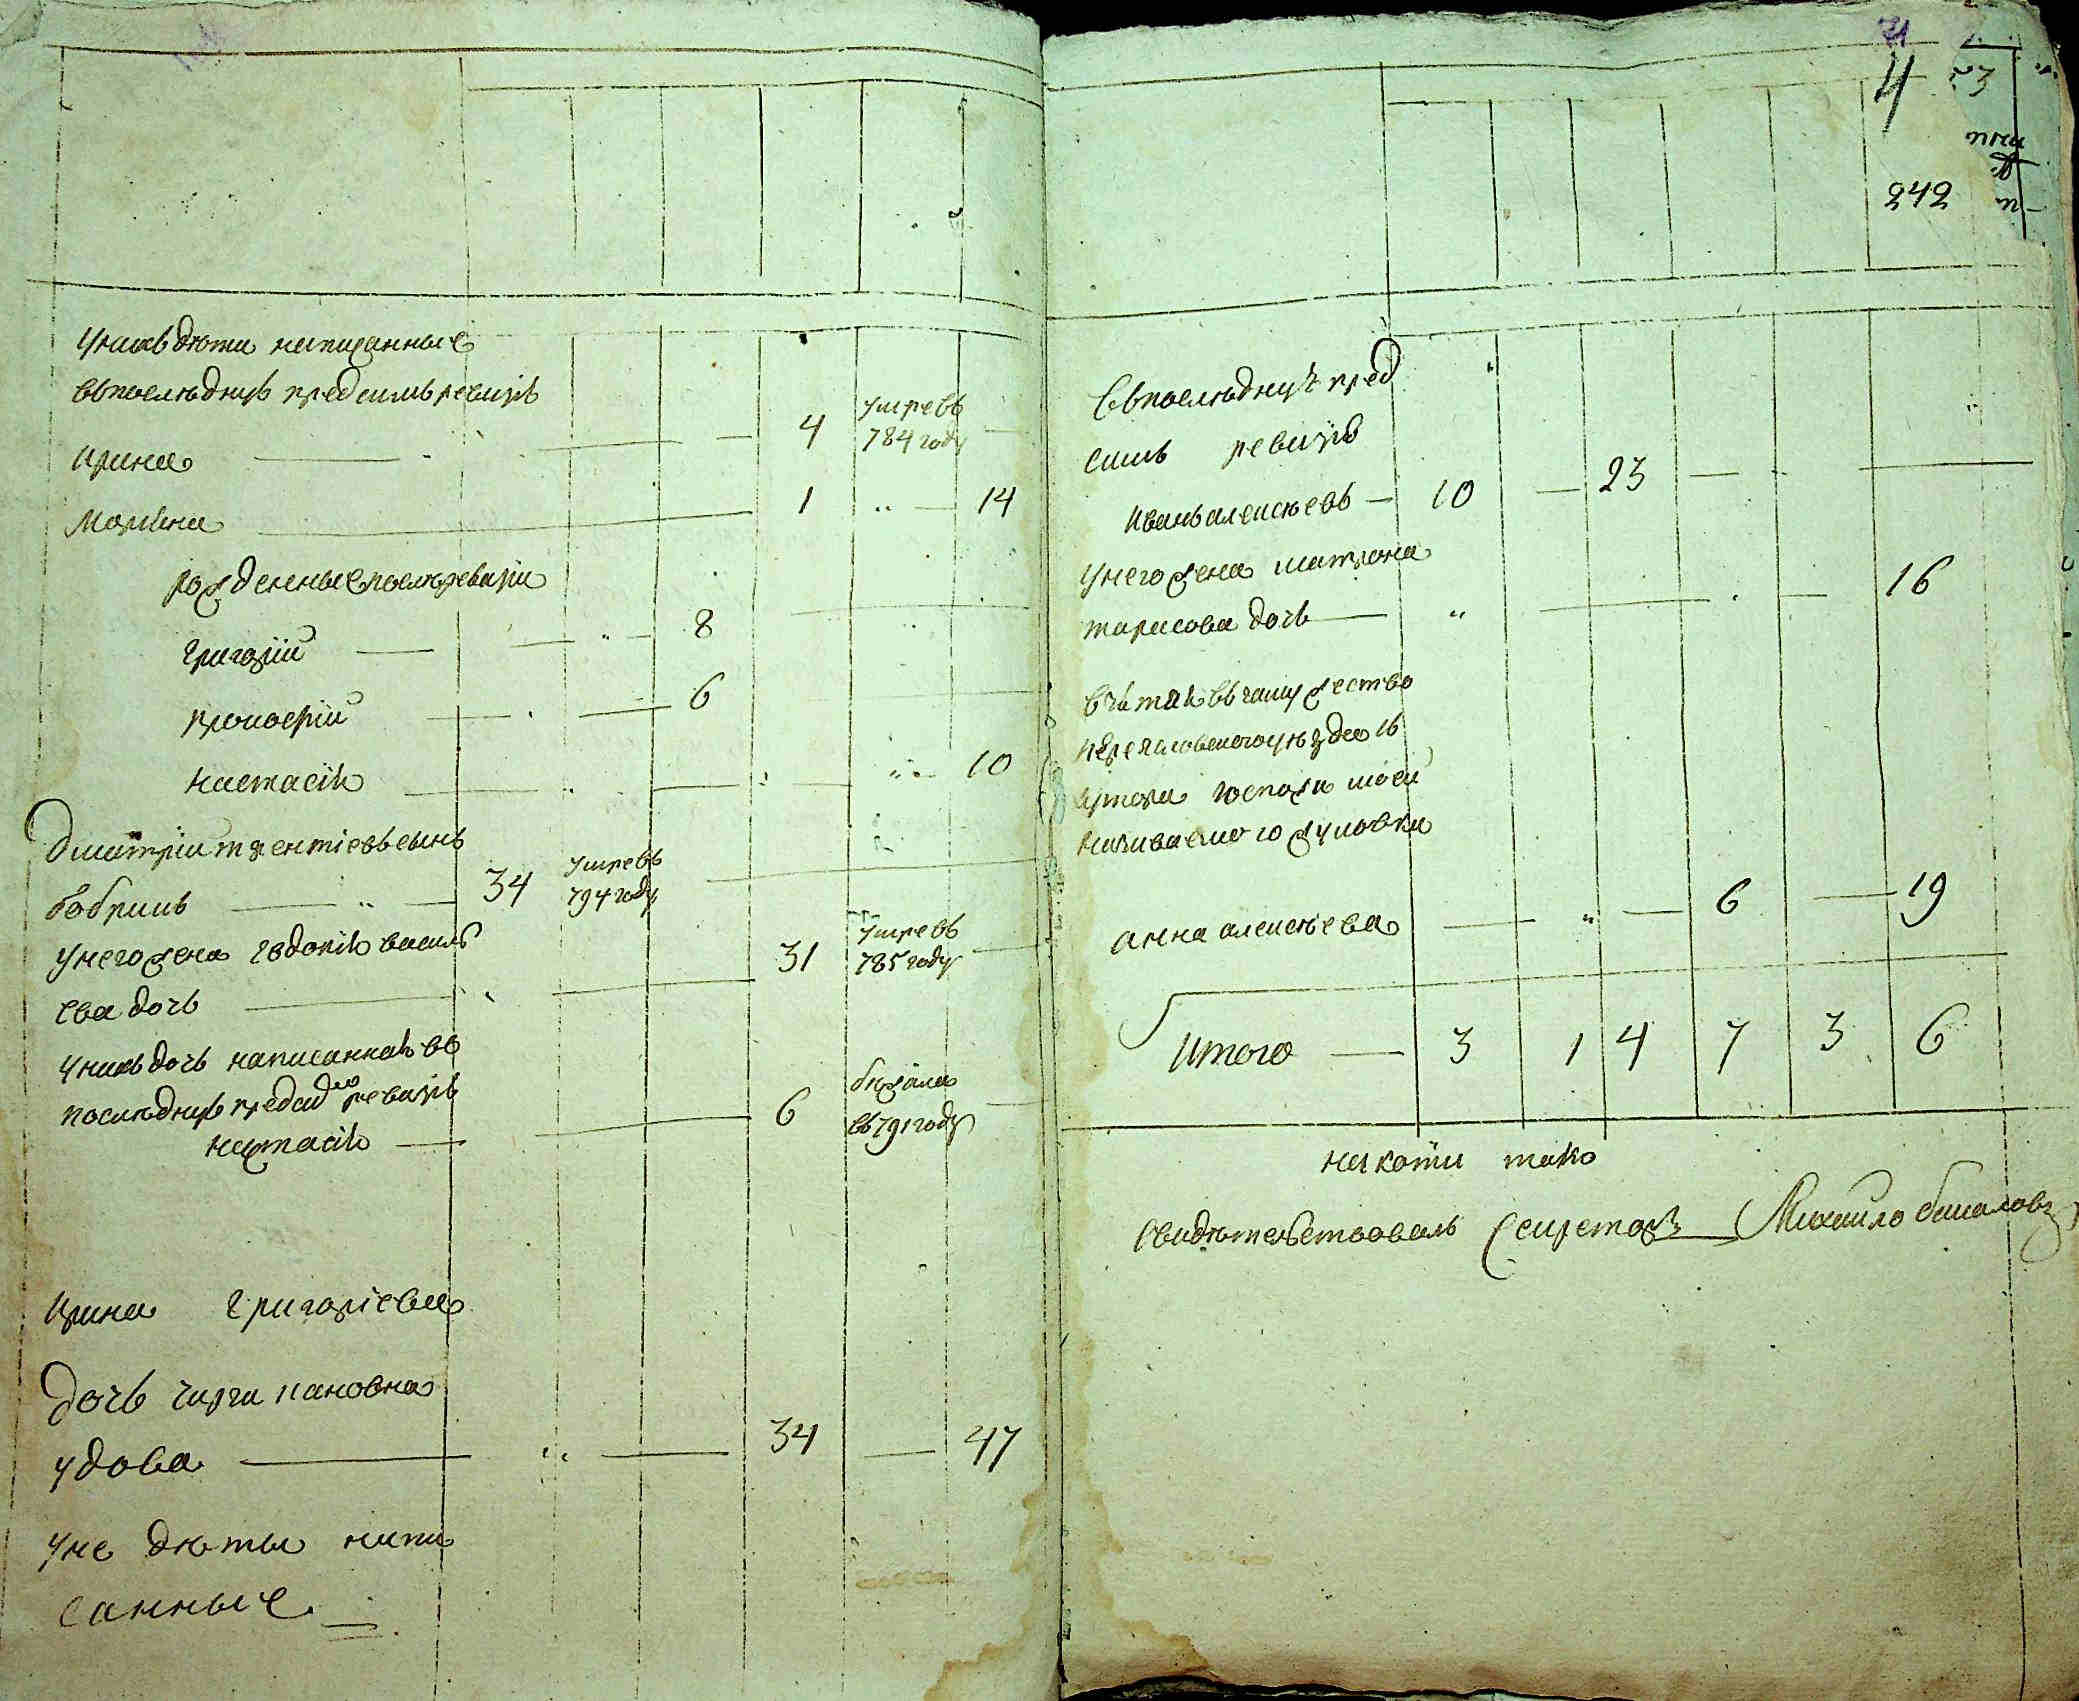 У нихъ дѣти написанные
въ последнущ пред симъ ревизѣ
Ирина 4 умре въ 784 году
Марина 1 14
рожденные после ревизи
Григорій 8
Прокофій 6
Настасія 10
Дмитрій терентіевъ сынъ
бобрикъ 34 умре въ 794 году
У него жена евдокія василь
ева дочь 31 умре въ 785 году
У нихъ дочь написанная въ
последнущ пред сидею ревизѣ
Настасія 6 бежала въ 791 году
Ирина Григоріева
дочь
удова 34 47
У не дѣты напи
санные
4
242
въ последнущ пред
симъ ревизѣ
Иванъ алексѣевъ 10 23
У него жена матрона
тарасова дочь 16
взята въ замужество
переяловского уезда съ
хутора госпожи моей
называемого жуковки
анна алексѣева 6 19
Итого 3 1 4 7 3 6
на копіи тако
свидѣтельствовалъ Секретарь Михайло